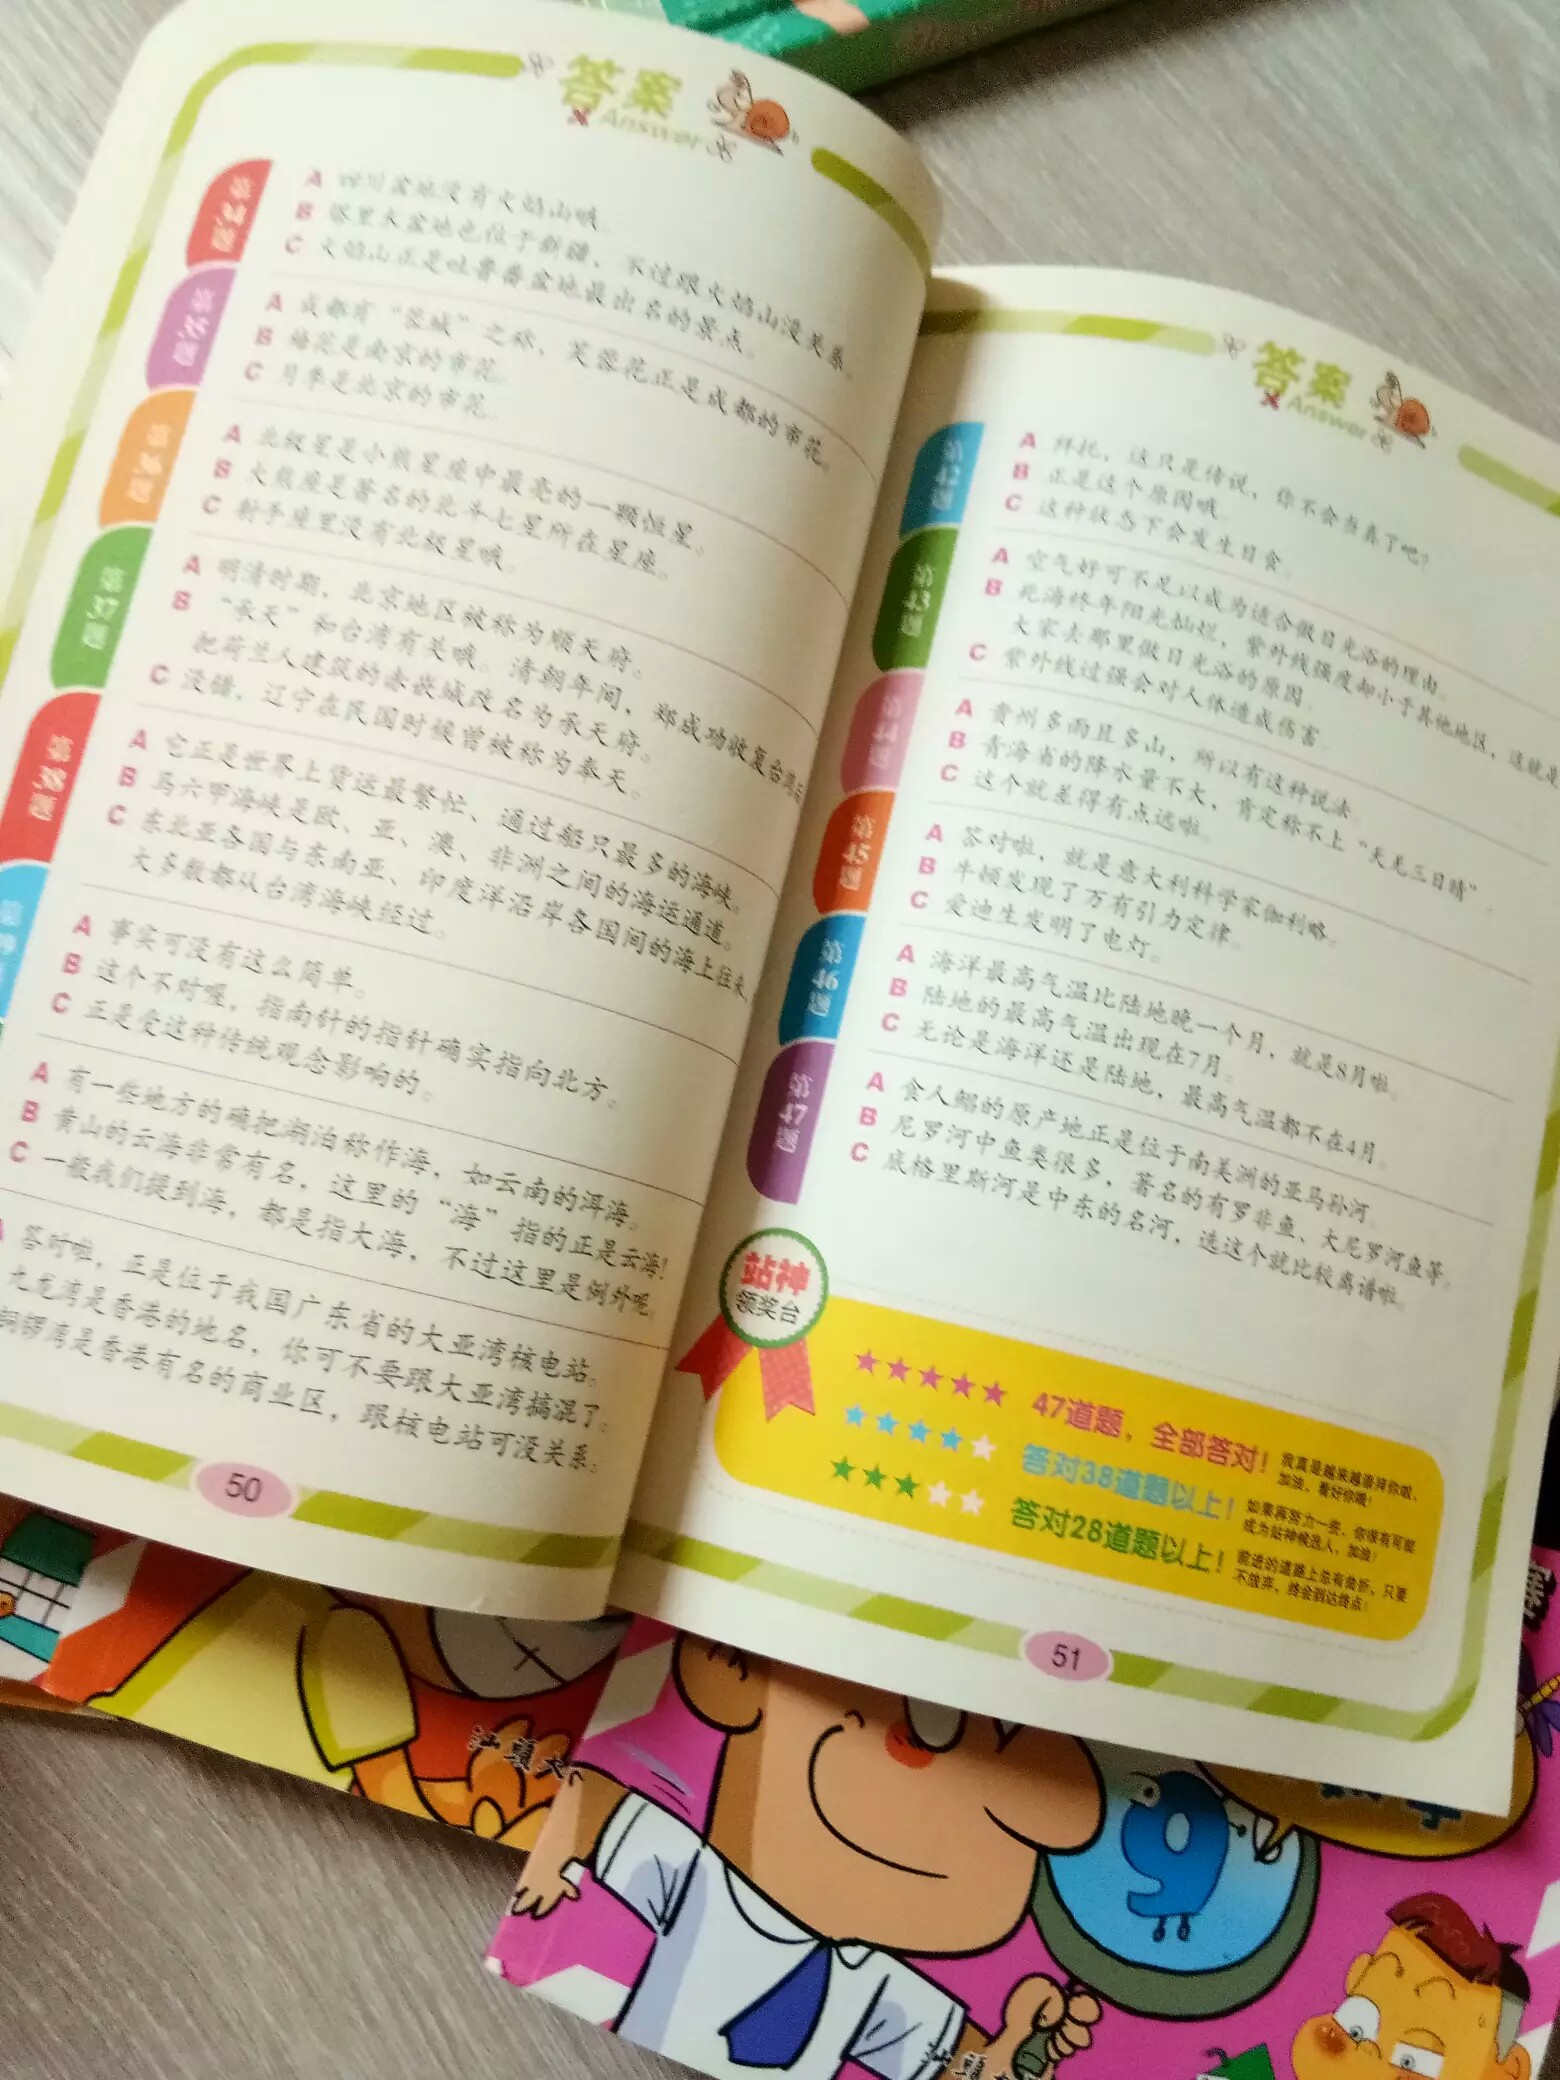 答案
Answer
第34题
A 四川盆地没有火焰山哦。
B 塔里木盆地也位于新疆，不过跟火焰山没关系。
C 火焰山正是吐鲁番盆地最出名的景点。
第35题
A 成都有“蓉城”之称，芙蓉花正是成都的市花。
B 梅花是南京的市花。
C 月季是北京的市花。
第36题
A 北极星是小熊星座中最亮的一颗恒星。
B 大熊座是著名的北斗七星所在星座。
C 射手座里没有北极星哦。
第37题
A 明清时期，北京地区被称为顺天府。
B “承天”和台湾有关哦。清朝年间，郑成功收复台湾后
把荷兰人建筑的赤嵌城改名为承天府。
C 没错，辽宁在民国时候曾被称为奉天。
第38题
A 它正是世界上货运最繁忙、通过船只最多的海峡。
B 马六甲海峡是欧、亚、澳、非洲之间的海运通道。
C 东北亚各国与东南亚、印度洋沿岸各国间的海上往来，
大多数都从台湾海峡经过。
第
A 事实可没有这么简单。
B 这个不对喔，指南针的指针确实指向北方。
C 正是受这种传统观念影响的。
A 有一些地方的确把湖泊称作海，如云南的洱海。
B 黄山的云海非常有名，这里的“海”指的正是云海！
C 一般我们提到海，都是指大海，不过这里是例外呢。
答对啦，正是位于我国广东省的大亚湾核电站。
九龙湾是香港的地名，你可不要跟大亚湾搞混了。
铜锣湾是香港有名的商业区，跟核电站可没关系。
50
答案
Answer
第42题
A 拜托，这只是传说，你不会当真了吧？
B 正是这个原因哦。
C 这种状态下会发生日食。
第43题
A 空气好可不足以成为适合做日光浴的理由。
B 死海终年阳光灿烂，紫外线强度却小于其他地区，这就是
大家去那里做日光浴的原因。
C 紫外线过强会对人体造成伤害。
第44题
A 贵州多雨且多山，所以有这种说法。
B 青海省的降水量不大，肯定称不上“天无三日晴”。
C 这个就差得有点远啦。
第45题
A 答对啦，就是意大利科学家伽利略。
B 牛顿发现了万有引力定律。
C 爱迪生发明了电灯。
第46题
A 海洋最高气温比陆地晚一个月，就是8月啦。
B 陆地的最高气温出现在7月。
C 无论是海洋还是陆地，最高气温都不在4月。
第47题
A 食人鲳的原产地正是位于南美洲的亚马孙河。
B 尼罗河中鱼类很多，著名的有罗非鱼、大尼罗河鱼等。
C 底格里斯河是中东的名河，选这个就比较离谱啦。
站神
领奖台
47道题，全部答对！
我真是越来越崇拜你啦，
加油，看好你哦！
答对38道题以上！
如果再努力一些，你很有可能
成为站神候选人，加油！
答对28道题以上！
前进的道路上总有曲折，只要
不放弃，终会到达终点！
51
汕頭大
汕頭
9